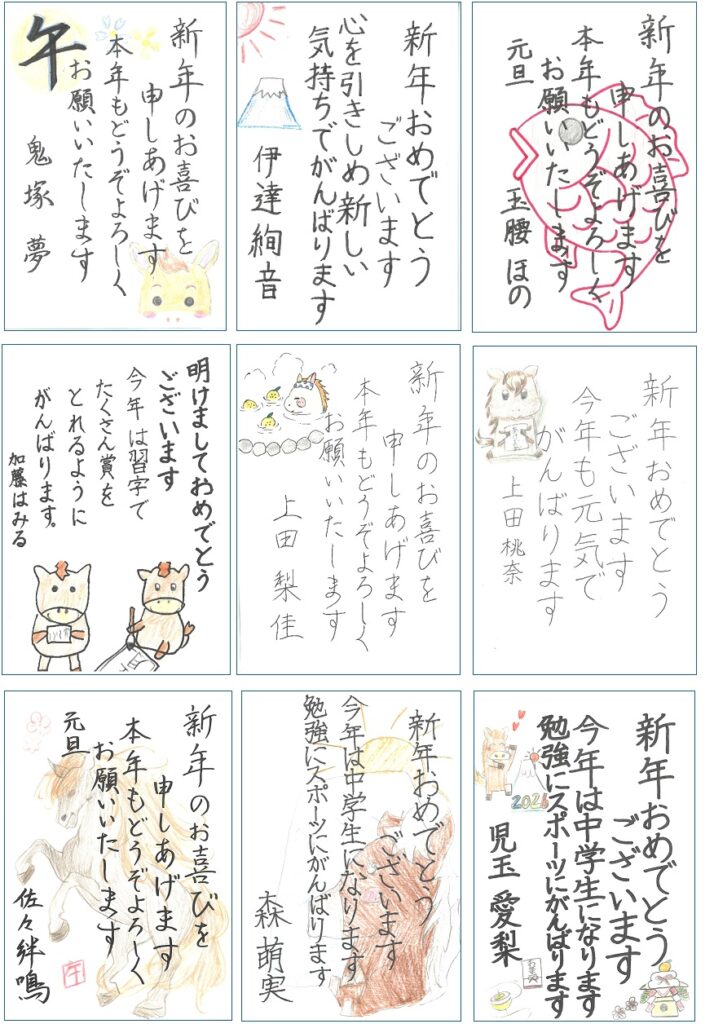 午
新年のお喜びを
申しあげます
本年もどうぞよろしく
お願いいたします
鬼塚 夢
新年おめでとう
ございます
心を引きしめ新しい
気持ちでがんばります
伊達絢音
新年のお喜びを
申しあげます
本年もどうぞよろしく
お願いいたします
元旦
玉腰 ほの
明けましておめでとう
ございます
今年は習字で
たくさん賞を
とれるように
がんばります。
加藤はみる
新年のお喜びを
申しあげます
本年もどうぞよろしく
お願いいたします
上田 梨佳
新年おめでとう
ございます
今年も元気で
がんばります
上田 桃奈
新年のお喜びを
申しあげます
本年もどうぞよろしく
お願いいたします
元旦
佐々絆鳴
新年おめでとう
ございます
今年は中学生になります
勉強にスポーツにがんばります
森 萌実
新年おめでとう
ございます
今年は中学生になります
勉強にスポーツにがんばります
児玉 愛梨
2026